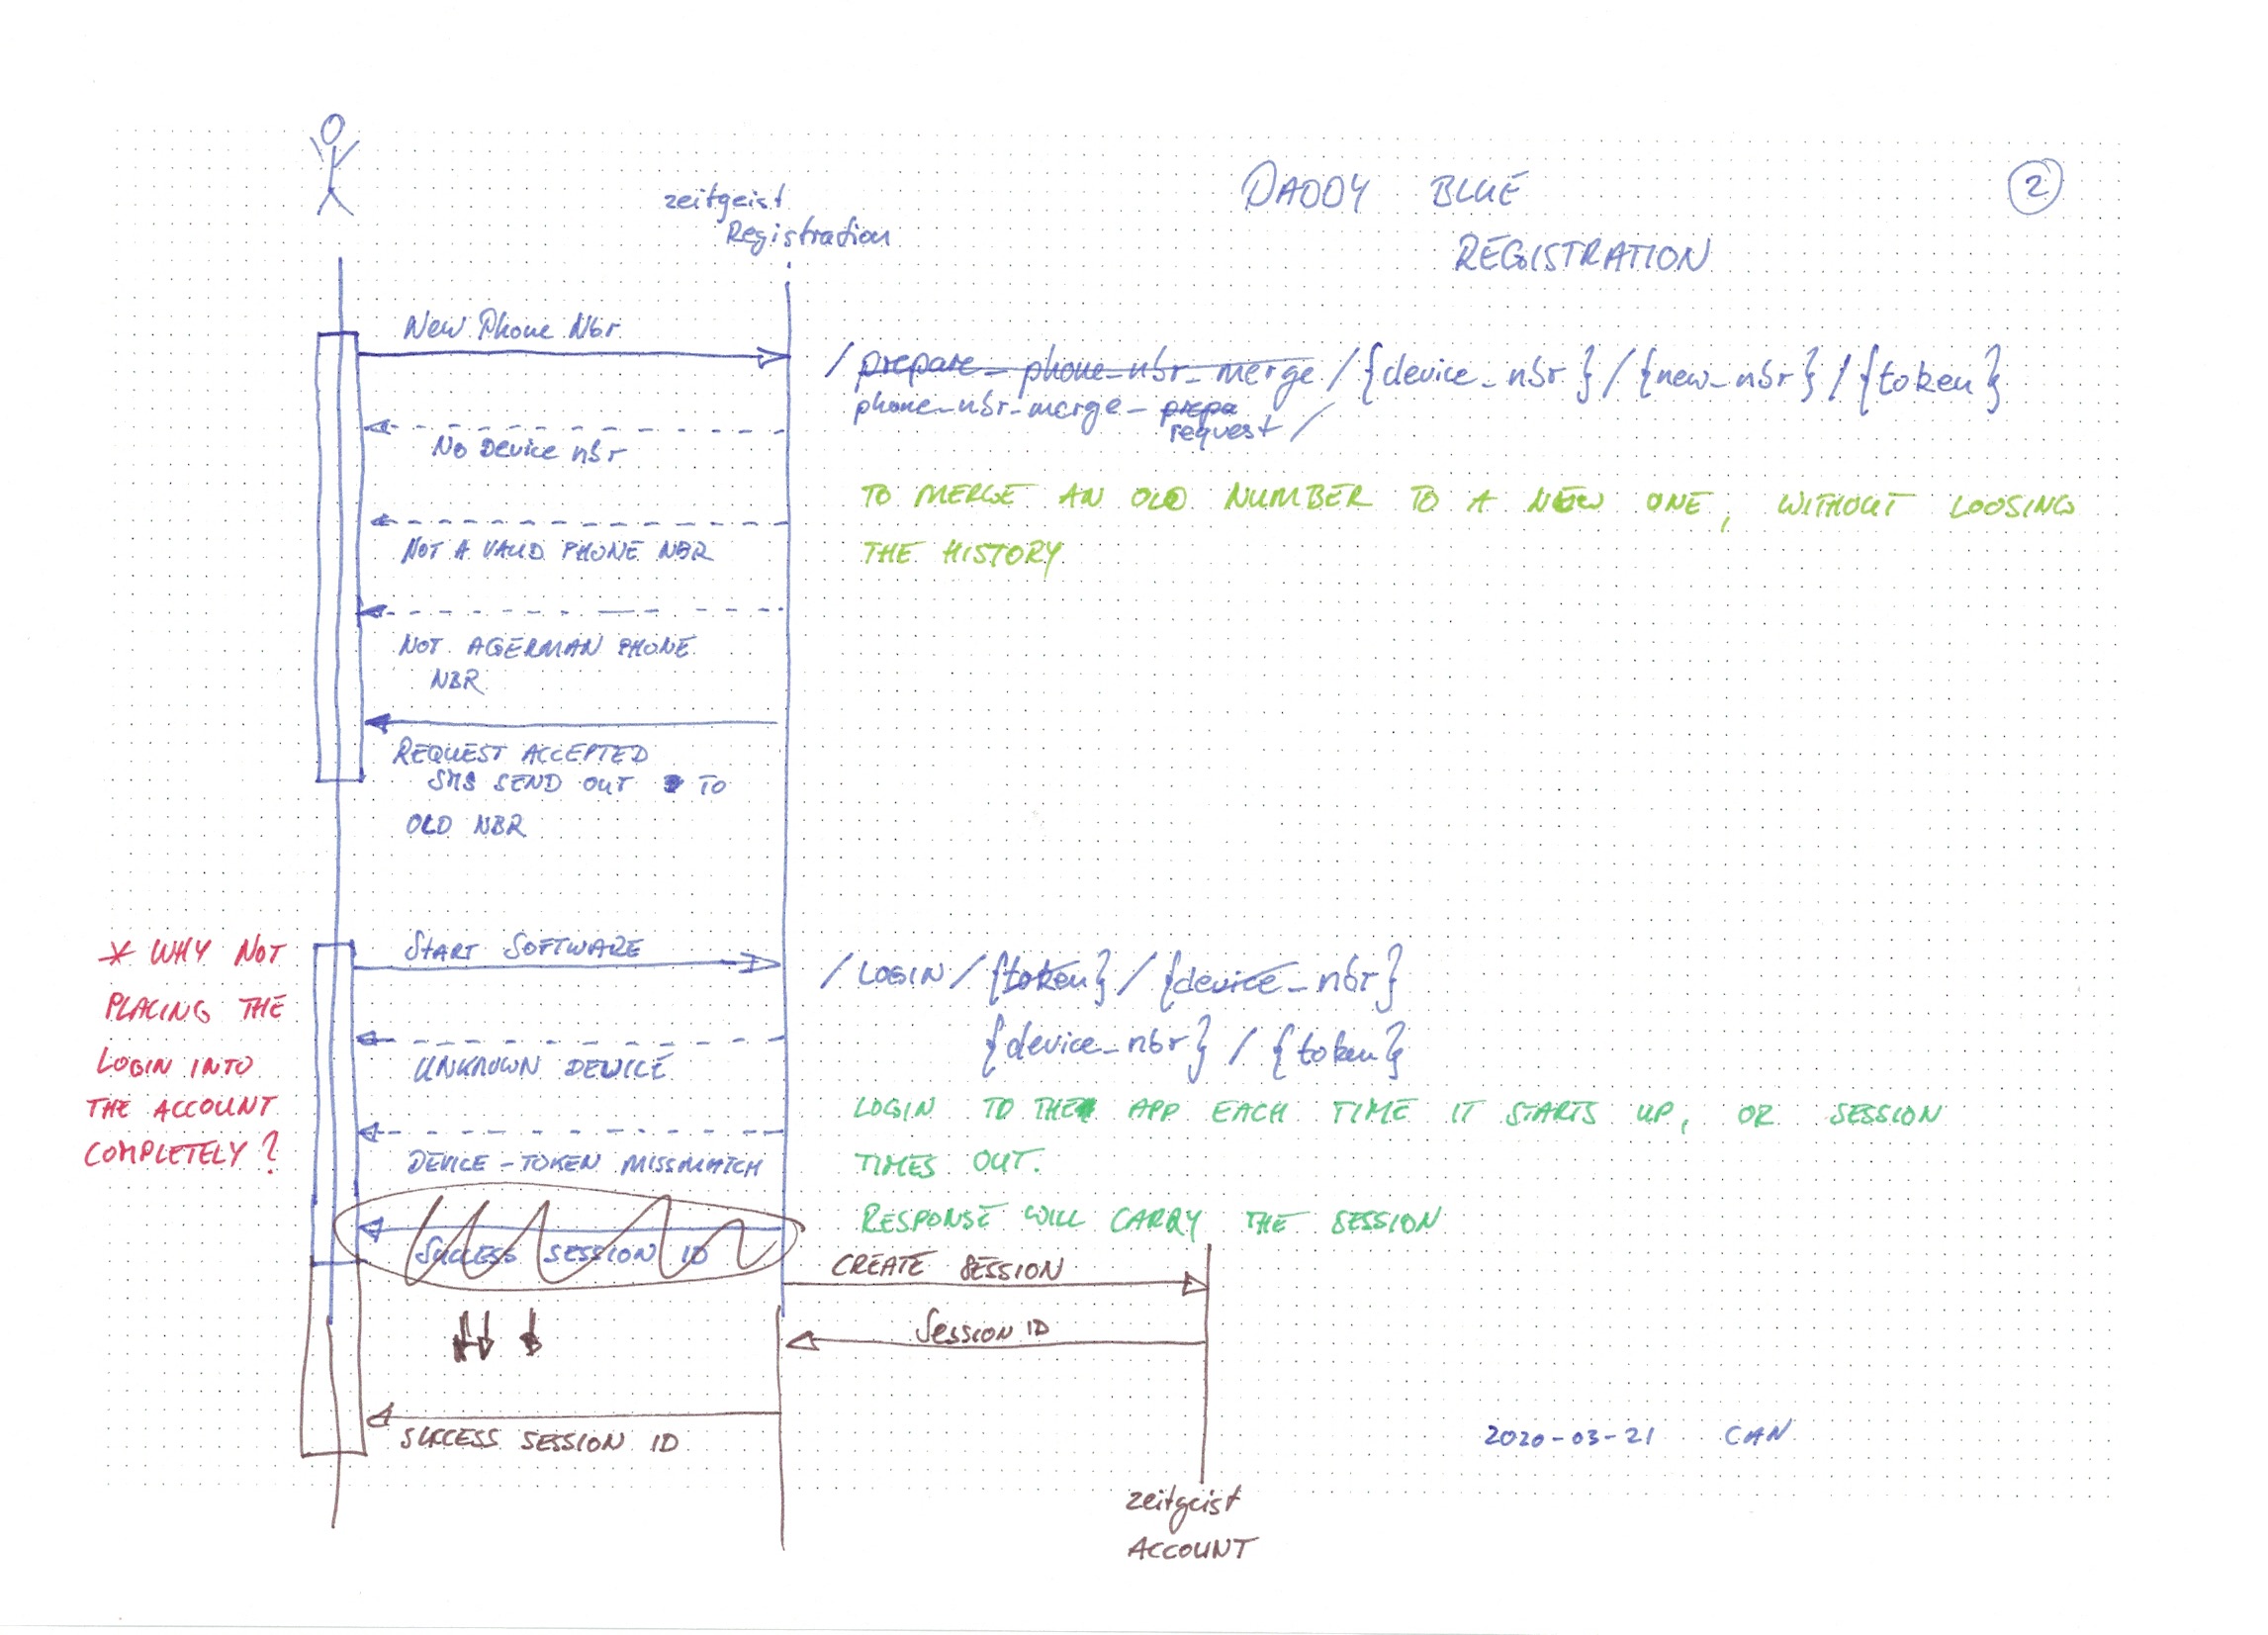 DADDY BLUE
REGISTRATION
2
zeitgeist
Registration
New Phone Nbr
/ prepare_phone_nbr_merge / {device_nbr} / {new_nbr} / {token}
phone_nbr_merge_prepa
request /
No Device nbr
TO MERGE AN OLD NUMBER TO A NEW ONE, WITHOUT LOOSING
THE HISTORY
NOT A VALID PHONE NBR
NOT A GERMAN PHONE
NBR
REQUEST ACCEPTED
SMS SEND OUT TO
OLD NBR
* WHY NOT
PLACING THE
LOGIN INTO
THE ACCOUNT
COMPLETELY?
START SOFTWARE
/ LOGIN / {token} / {device_nbr}
{device_nbr} / {token}
UNKNOWN DEVICE
LOGIN TO THE APP EACH TIME IT STARTS UP, OR SESSION
TIMES OUT.
DEVICE-TOKEN MISSMATCH
RESPONSE WILL CARRY THE SESSION
SUCCESS SESSION ID
CREATE SESSION
SESSION ID
SUCCESS SESSION ID
2020-03-21 CAN
zeitgeist
ACCOUNT